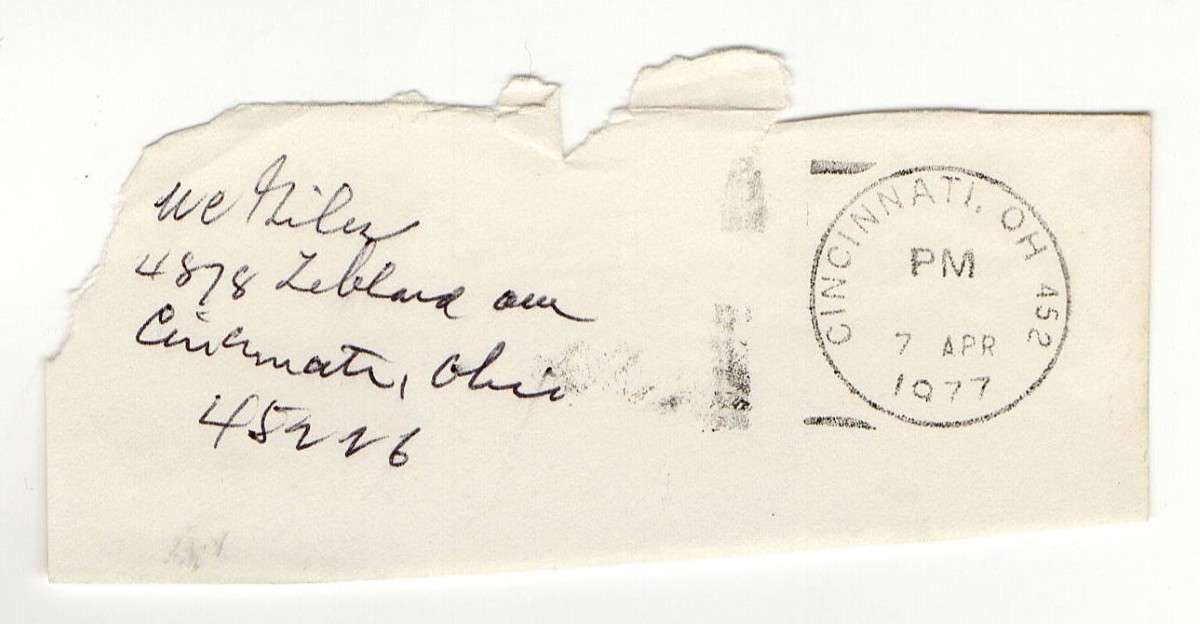 WC Giles
4878 Leblond ave
Cincinnati, Ohio
45226
CINCINNATI, OH 452
PM
7 APR
1977